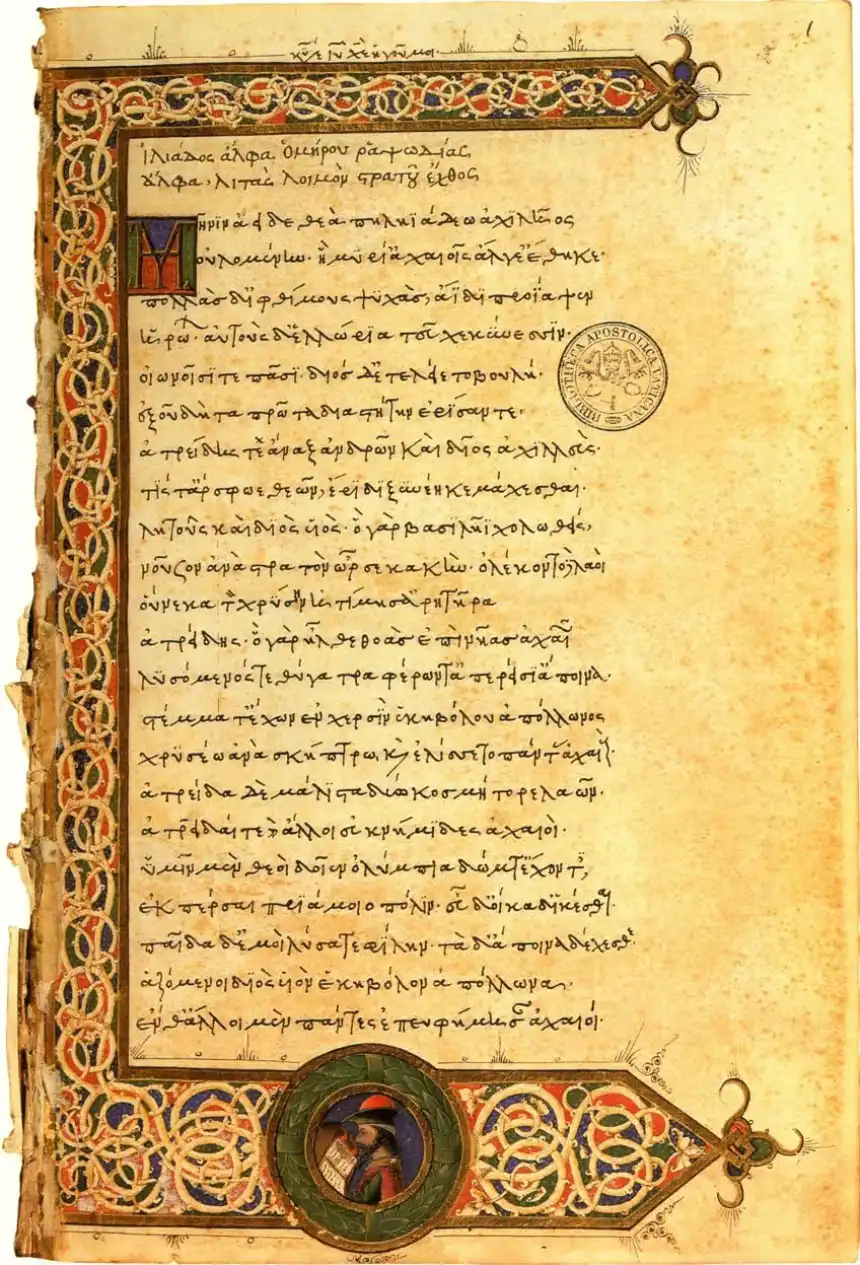 1
Ἰλιάδος ἄλφα Ὁμήρου ῥαψωδίας
ἄλφα, λιτὰς λοιμὸν στρατοῦ ἔχθος
Μῆνιν ἄειδε θεὰ πηληϊάδεω ἀχιλῆος
οὐλομένην· ἣ μυρί ἀχαιοῖς ἄλγε ἔθηκε·
πολλὰς δ ἰφθίμους ψυχὰς, ἄϊδι προΐαψεν
ἡρώ· αὐτοὺς δὲ ἑλλώρια τεῦχε κύνεσσιν·
οἰωνοῖσί τε πᾶσι· διὸς δὲ τελείετο βουλή·
ἐξ οὗ δὴ τα πρῶτα διαστήτην ἐρίσαντε·
ἀτρείδης τε ἄναξ ἀνδρῶν καὶ δῖος ἀχιλλεύς·
τίς τάρ σφωε θεῶν, ἔριδι ξυνέηκε μάχεσθαι·
λητοῦς καὶ διὸς υἱός· ὃ γὰρ βασιλῆϊ χολωθείς,
νοῦσον ἀνὰ στρατὸν ὦρσε κακὴν· ὀλέκοντο λαοὶ
οὕνεκα τὸν χρύσην ἠτίμησ ἀρητῆρα
ἀτρείδης· ὃ γὰρ ἦλθε θοὰς ἐπὶ νῆας ἀχαιῶν
λυσόμενός τε θύγατρα φέρων τ ἀπερείσι ἄποινα·
στέμμα τ ἔχων ἐν χερσὶν ἑκηβόλου ἀπόλλωνος
χρυσέω ἀνὰ σκήπτρω, καὶ ἐλίσσετο πάντας ἀχαιούς·
ἀτρείδα δὲ μάλιστα δύω κοσμήτορε λαῶν·
ἀτρεῖδαί τε ἄλλοι ἐϋκνήμιδες ἀχαιοὶ·
ὑμῖν μὲν θεοὶ δοῖεν ὀλύμπια δώματ ἔχοντες,
ἐκπέρσαι πριάμοιο πόλιν· εὖ δ οἴκαδ ἱκέσθαι·
παῖδα δέ μοι λύσατε φίλην· τὰ δ ἄποινα δέχεσθε·
ἁζόμενοι διὸς υἱὸν ἑκηβόλον ἀπόλλωνα,
ἔνθ ἄλλοι μὲν πάντες ἐπευφήμησαν ἀχαιοί·
BIBLIOTHECA APOSTOLICA VATICANA